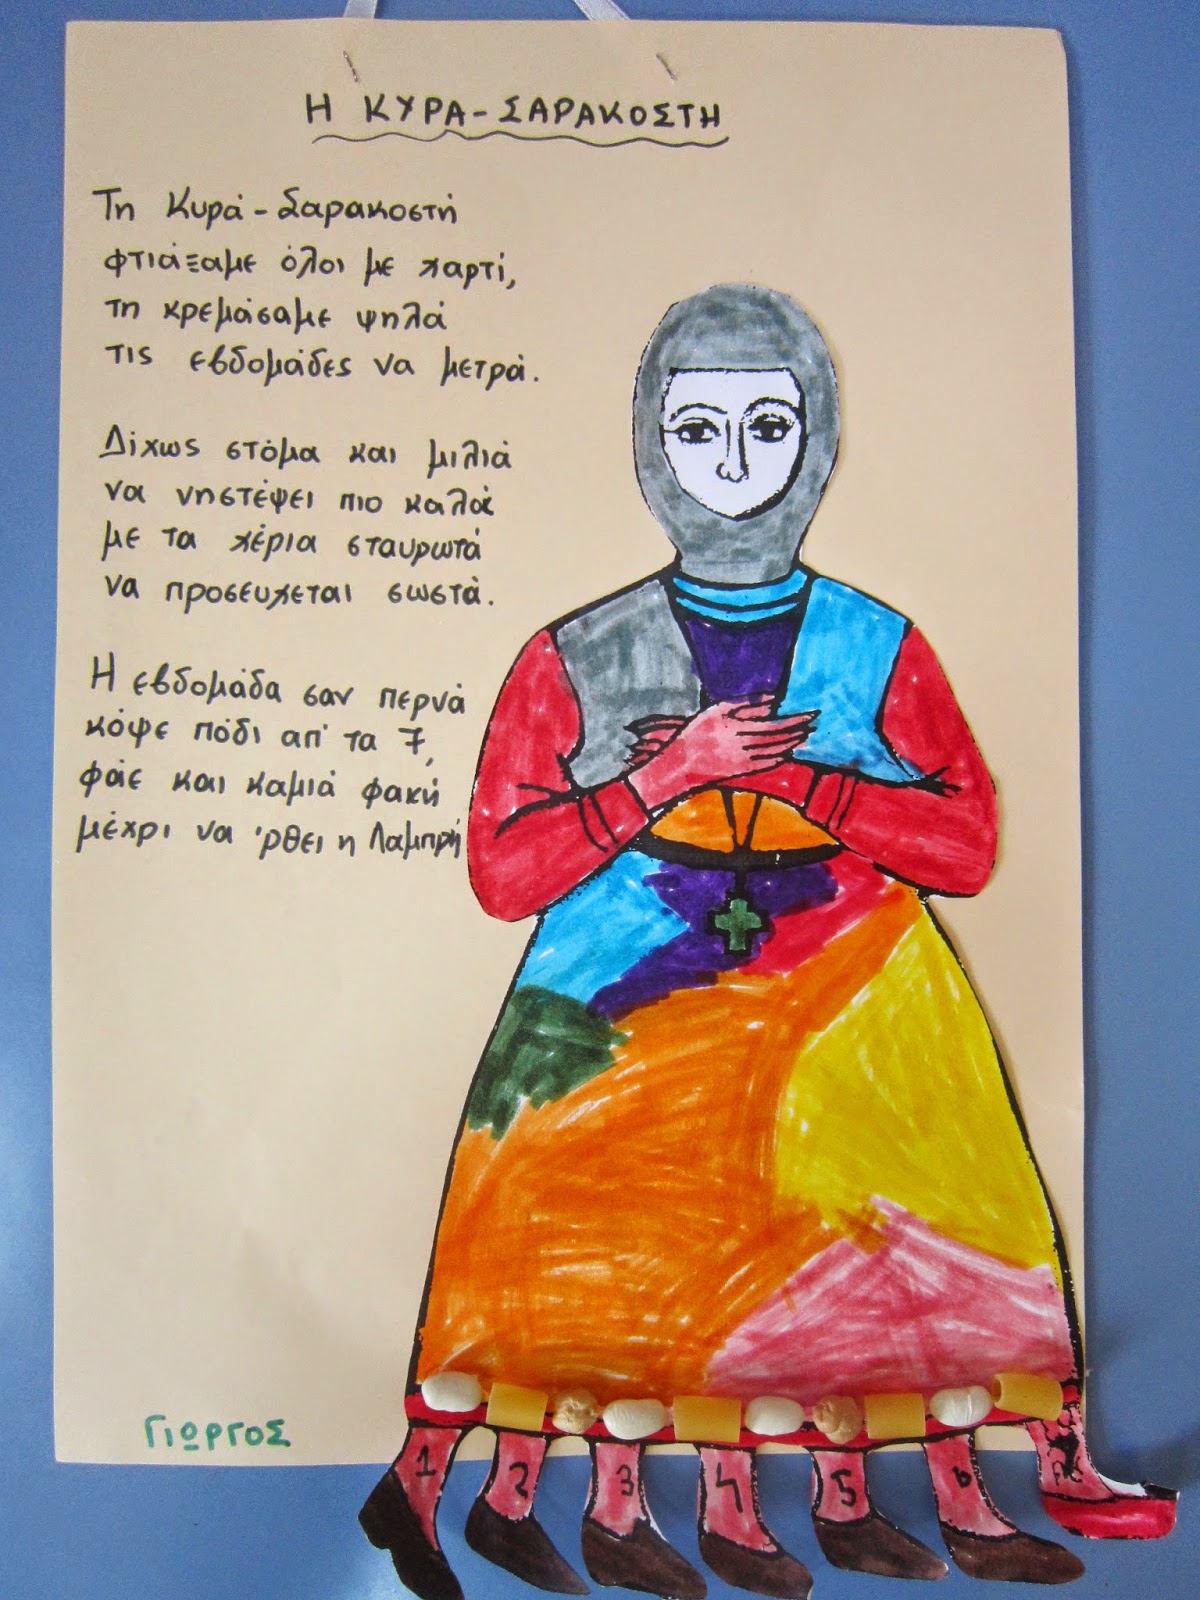 Η ΚΥΡΑ-ΣΑΡΑΚΟΣΤΗ
Τη Κυρά-Σαρακοστή
φτιάξαμε όλοι με χαρτί,
τη κρεμάσαμε ψηλά
τις εβδομάδες να μετρά.
Δίχως στόμα και μιλιά
να νηστέψει πιο καλά
με τα χέρια σταυρωτά
να προσεύχεται σωστά.
Η εβδομάδα σαν περνά
κόψε πόδι απ' τα 7,
φάε και καμιά φακή
μέχρι να 'ρθει η Λαμπρή
ΓΙΩΡΓΟΣ
1 2 3 4 5 6